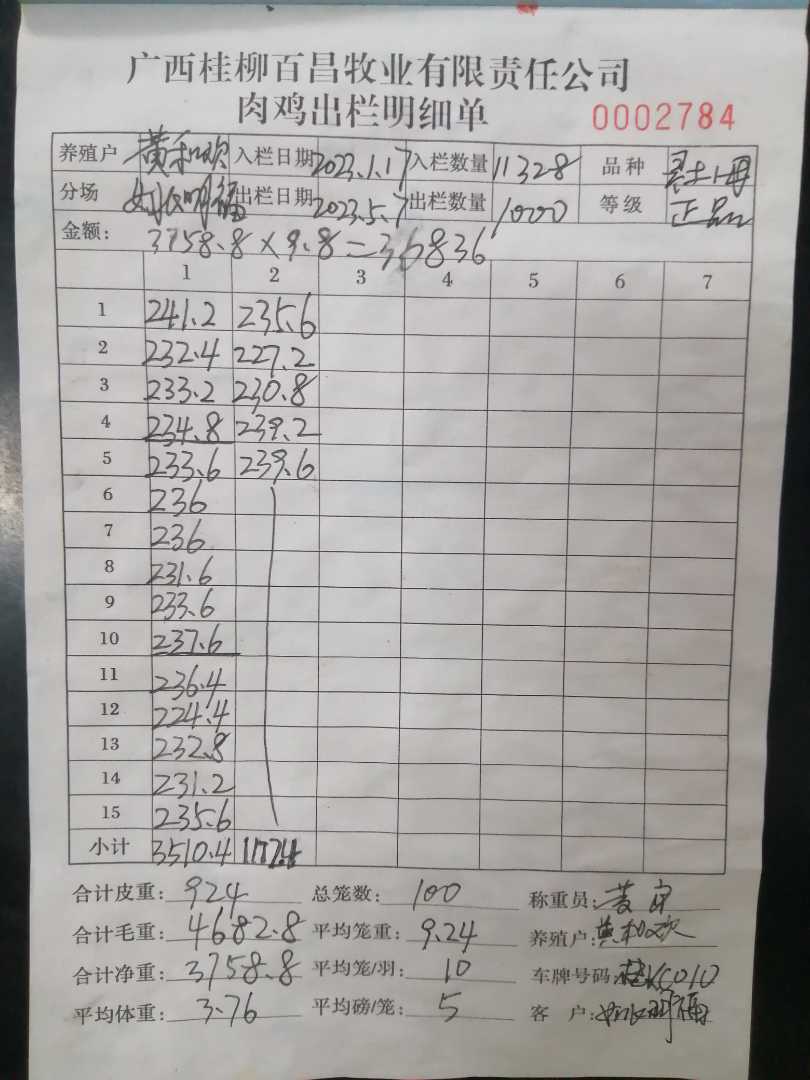 广西桂柳百昌牧业有限责任公司
肉鸡出栏明细单 0002784
养殖户 黄和欢 入栏日期 2023.1.17 入栏数量 11328 品种
分场 明福 出栏日期 2023.5.7 出栏数量 1000 等级 正品
金额: 3758.8×9.8=36836
1 2 3 4 5 6 7
1 241.2 235.6
2 232.4 227.2
3 233.2 230.8
4 234.8 239.2
5 233.6 239.6
6 236
7 236
8 231.6
9 233.6
10 237.6
11 236.4
12 224.4
13 232.8
14 231.2
15 235.6
小计 3510.4
合计皮重: 924 总笼数: 100 称重员: 黄
合计毛重: 4682.8 平均笼重: 9.24 养殖户: 黄和欢
合计净重: 3758.8 平均笼/羽: 10 车牌号码:
平均体重: 3.76 平均磅/笼: 5 客户: 明福